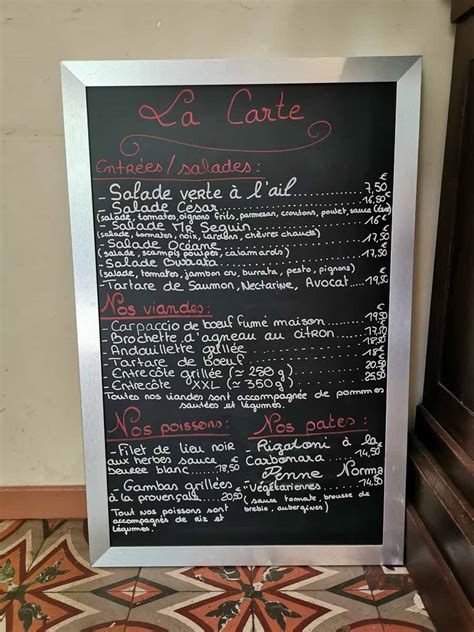 La Carte
Entrées/salades:
- Salade verte à l'ail............7,50€
- Salade César............16,50€
(salade, tomates, oignons frits, parmesan, croutons, poulet, sauce César)
- Salade Mr Seguin............16€
(salade, tomates, noix, lardons, chèvres chauds)
- Salade Océane............17,50€
(salade, scampis, poulpes, calamards)
- Salade Burrata............17,50€
(salade, tomates, jambon cru, burrata, pesto, pignons)
- Tartare de Saumon, Nectarine, Avocat....19,50
Nos viandes:
- Carpaccio de boeuf fumé maison............19,50
- Brochette d'agneau au citron............17,50
- Andouillette grillée............18€
- Tartare de boeuf............18€
- Entrecôte grillée (≈ 250 g)............20,50
- Entrecôte XXL (≈ 350 g)............25,50
Toutes nos viandes sont accompagnée de pommes
sautées et légumes.
Nos poissons:
- Filet de lieu noir
aux herbes sauce
beurre blanc....18,50
- Gambas grillées
à la provençale....20,50
Tout nos poissons sont
accompagnés de riz et
légumes.
Nos pates:
- Rigatoni à la
Carbonara......14,50
- Penne Norma
Végétariennes......14,50
(sauce tomate, brousse de
brebis, aubergines)